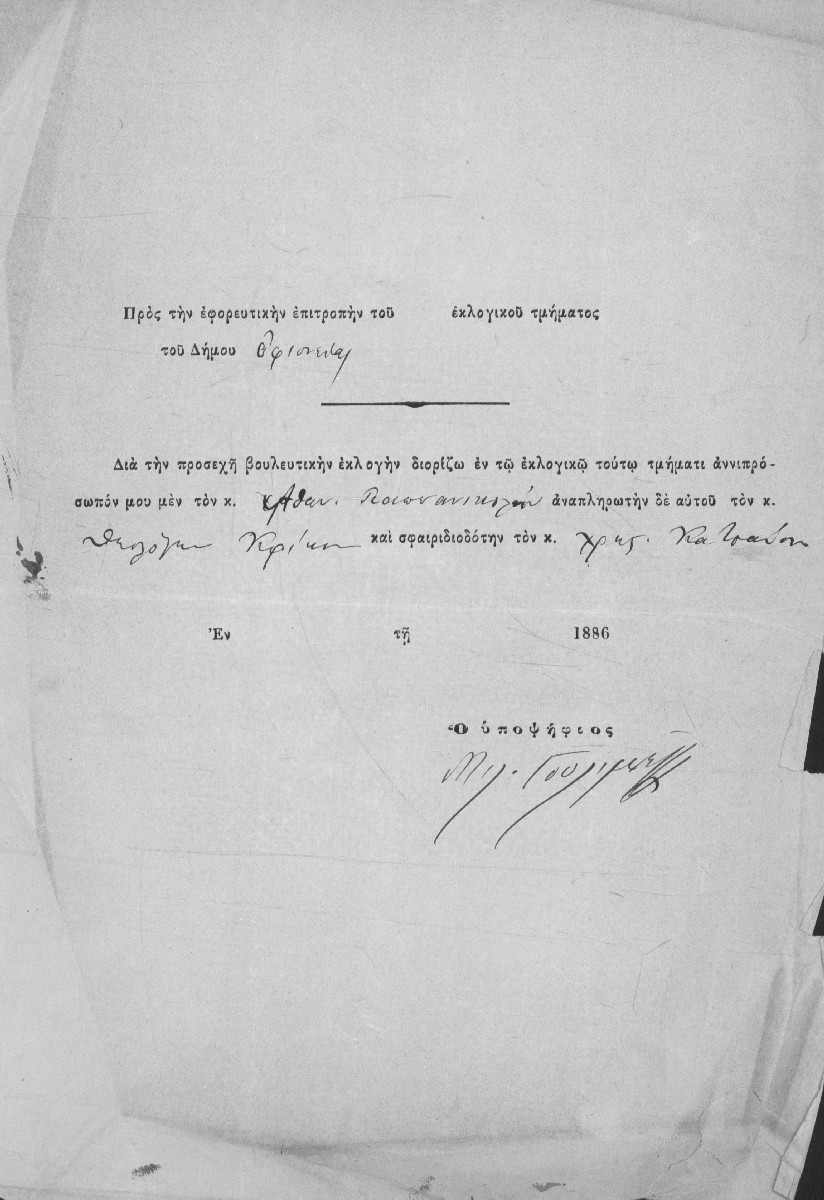 Πρὸς τὴν ἐφορευτικὴν ἐπιτροπὴν τοῦ ἐκλογικοῦ τμήματος
τοῦ Δήμου Ὀφιονείας
Διὰ τὴν προσεχῆ βουλευτικὴν ἐκλογὴν διορίζω ἐν τῷ ἐκλογικῷ τούτῳ τμήματι ἀννιπρό-
σωπόν μου μὲν τὸν κ. Ἀθαν. ἀναπληρωτὴν δὲ αὐτοῦ τὸν κ.
Κρίκον καὶ σφαιριδιοδότην τὸν κ. Χρῆς. Κατσαν
Ἐν τῇ 1886
Ὁ ὑποψήφιος
Μιλ. Γουλιμῆς